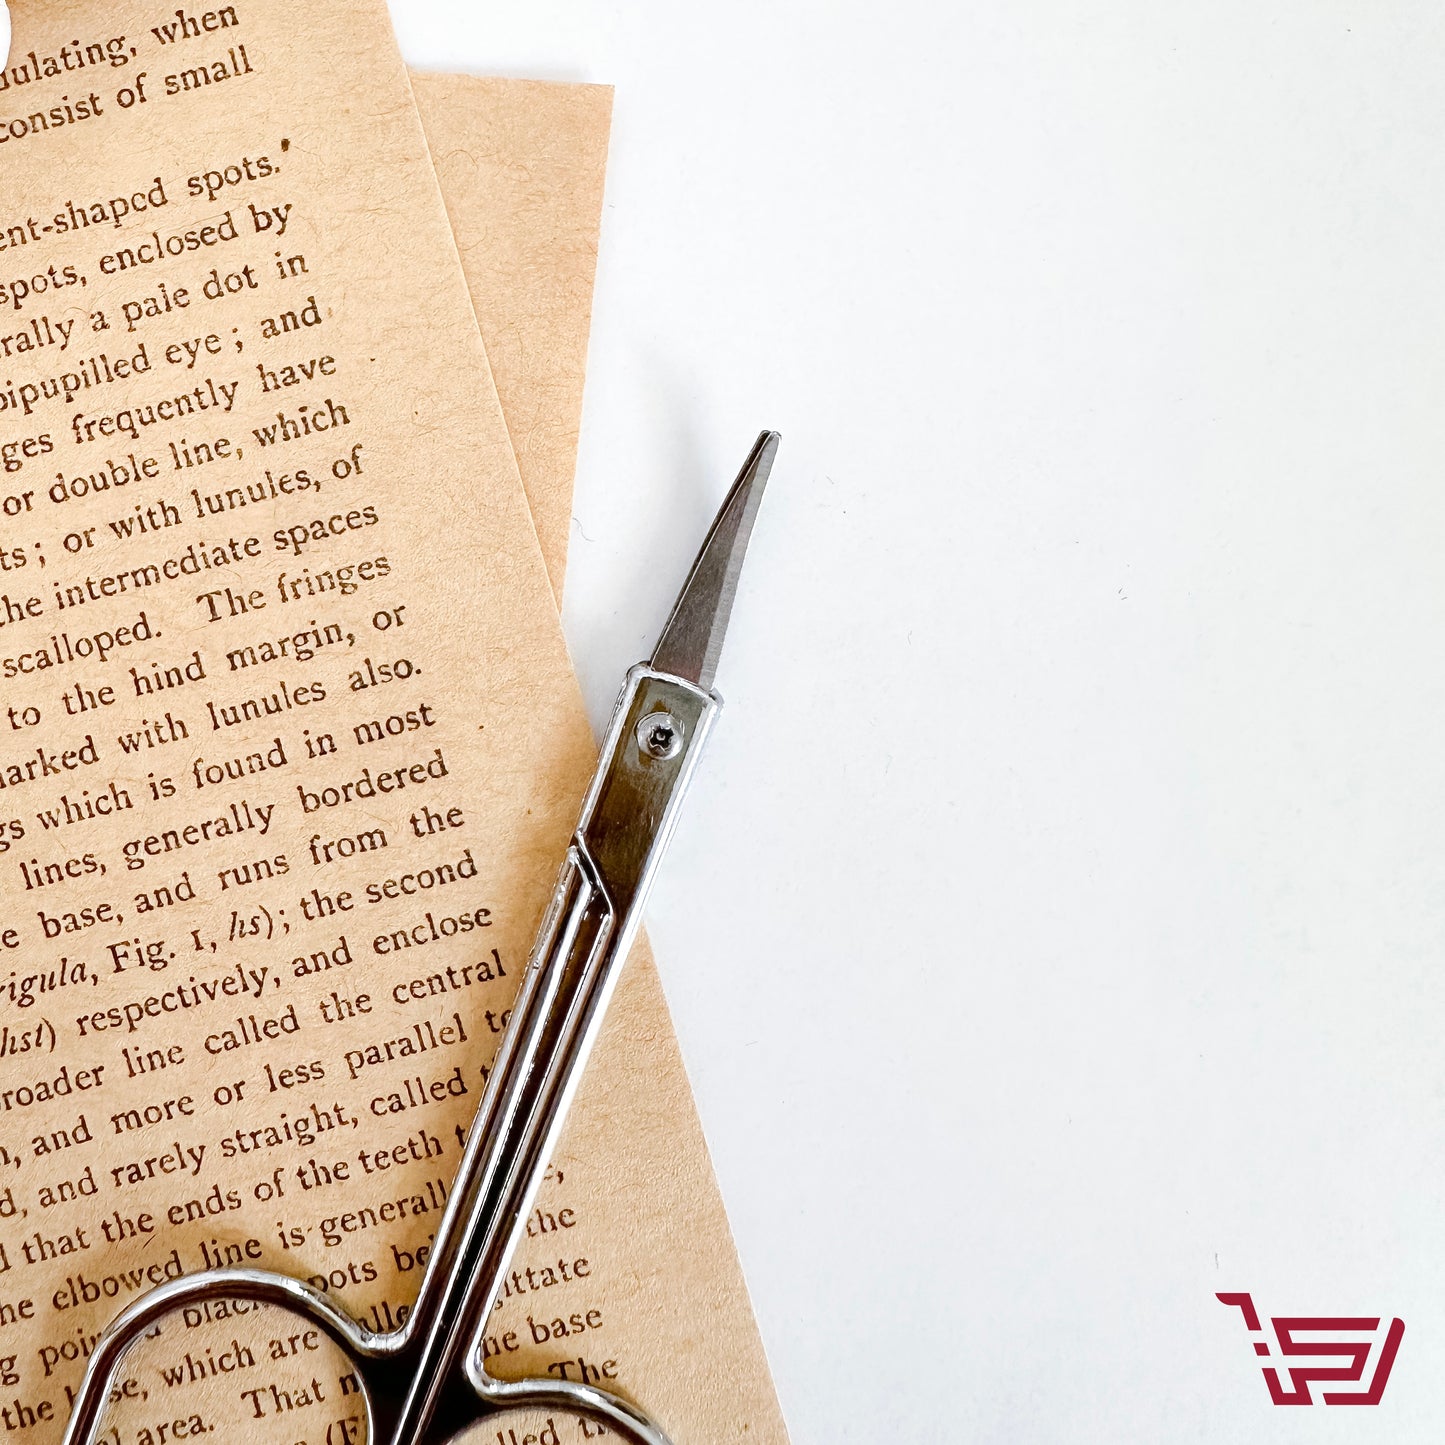 dulating, when
consist of small
ent-shaped spots.
spots, enclosed by
rally a pale dot in
bipupilled eye; and
ges frequently have
or double line, which
ts; or with lunules, of
the intermediate spaces
scalloped. The fringes
to the hind margin, or
marked with lunules also.
gs which is found in most
lines, generally bordered
e base, and runs from the
rigula, Fig. 1, hs); the second
hst) respectively, and enclose
roader line called the central
n, and more or less parallel to
d, and rarely straight, called
d that the ends of the teeth
he elbowed line is generall
g black spots be the
the which are alle gittate
al area. That ne base
The
lled